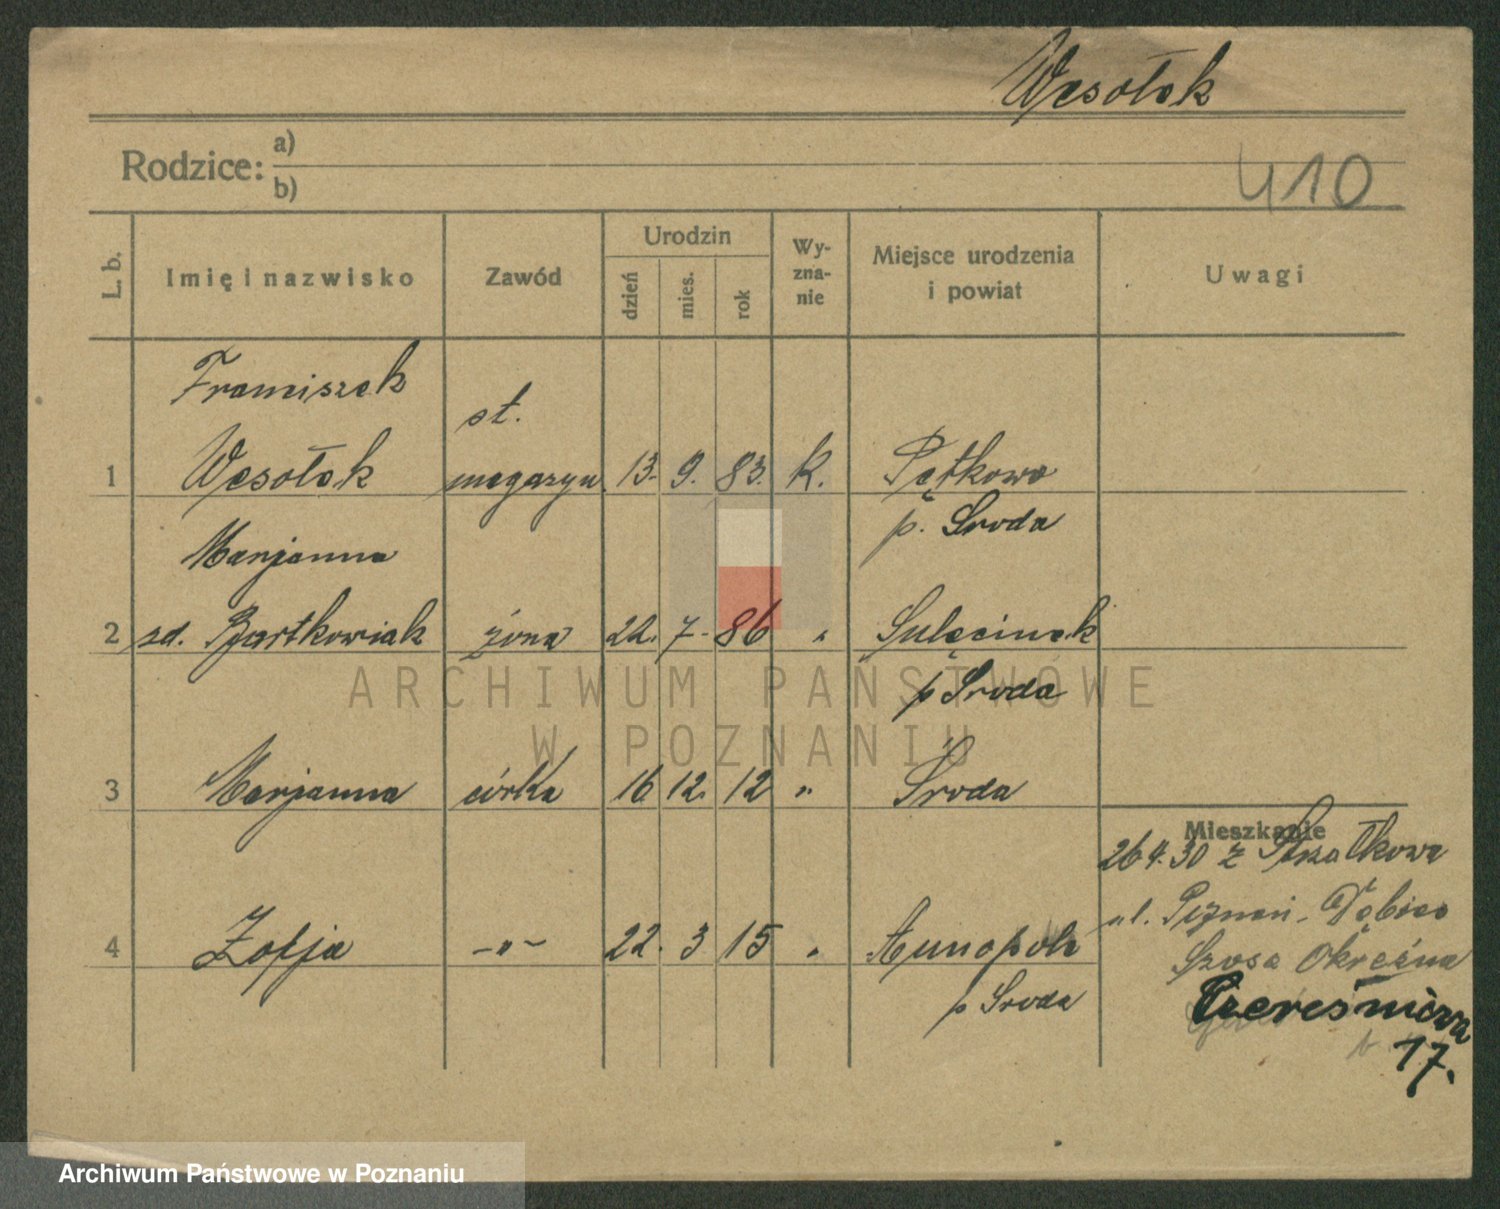 Wesołek
Rodzice: a)
b)
410
L. b.
Imię i nazwisko
Zawód
Urodzin
dzień
mies.
rok
Wy-
zna-
nie
Miejsce urodzenia
i powiat
Uwagi
Franciszek
st.
1 Wesołek magazyn. 13. 9. 83. k. Pętkowo
p. Środa
Marjanna
2 zd. Bartkowiak żona 22. 7. 86 " Sulęcinek
p Środa
3 Marjanna córka 16 12. 12 " Środa
Mieszkanie
26 4. 30 z Strzałkowa
ul. Poznań - Dębiec
4 Zofja -"- 22. 3 15 " Annopole
Szosa Okrężna
p Środa
Czereśniowa
17.
ARCHIWUM PAŃSTWOWE
W POZNANIU
Archiwum Państwowe w Poznaniu